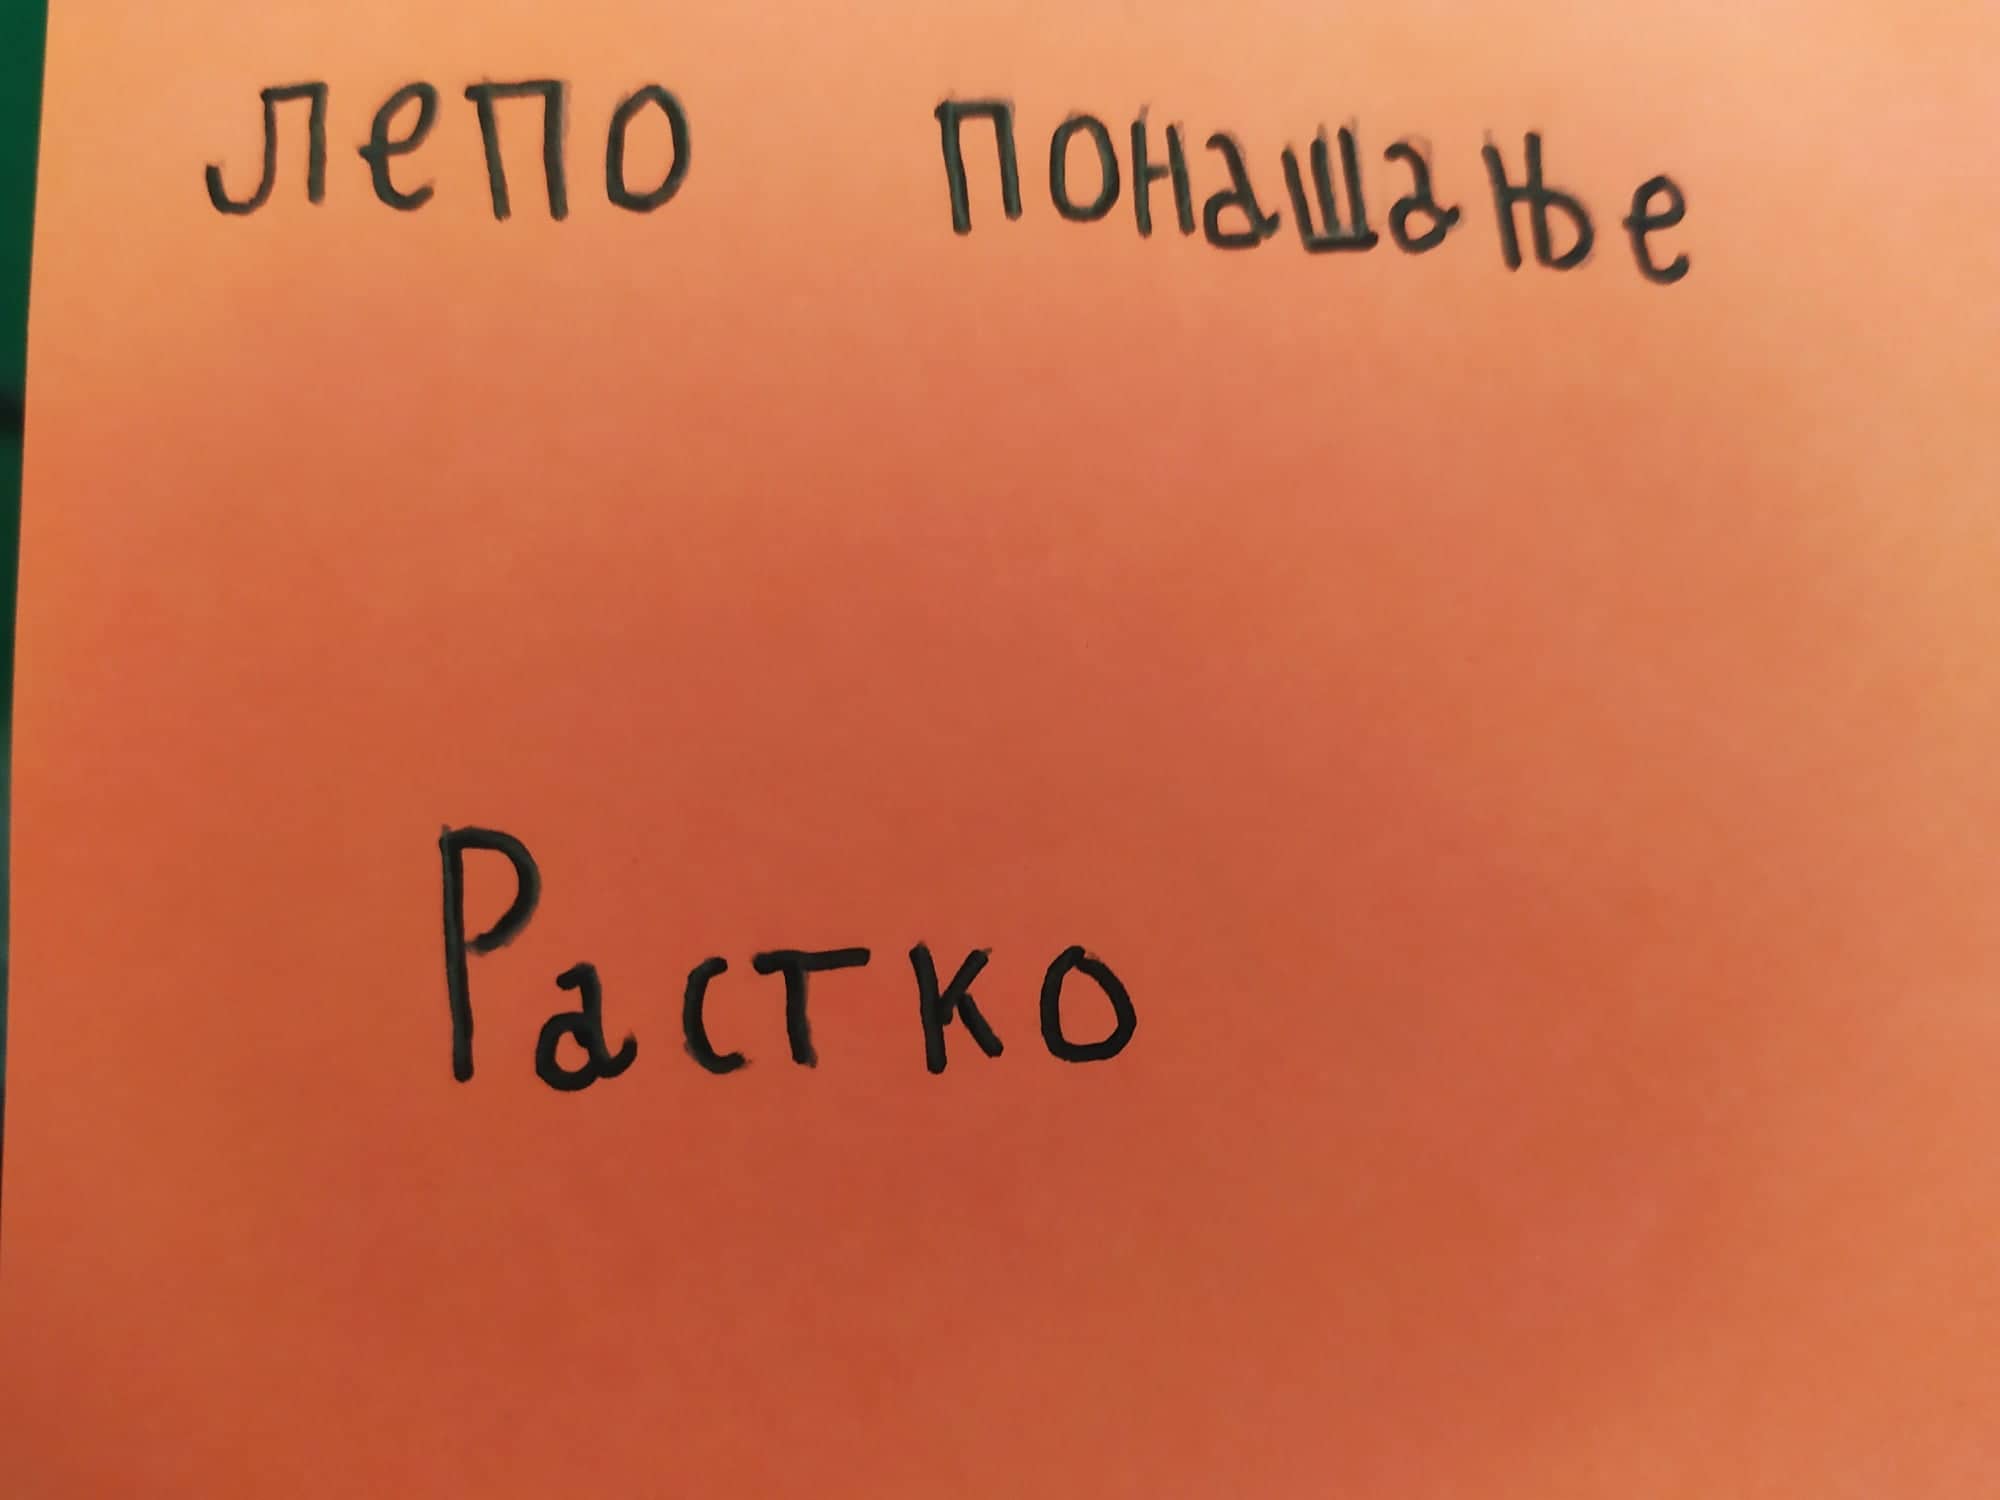 лепо понашање
Растко